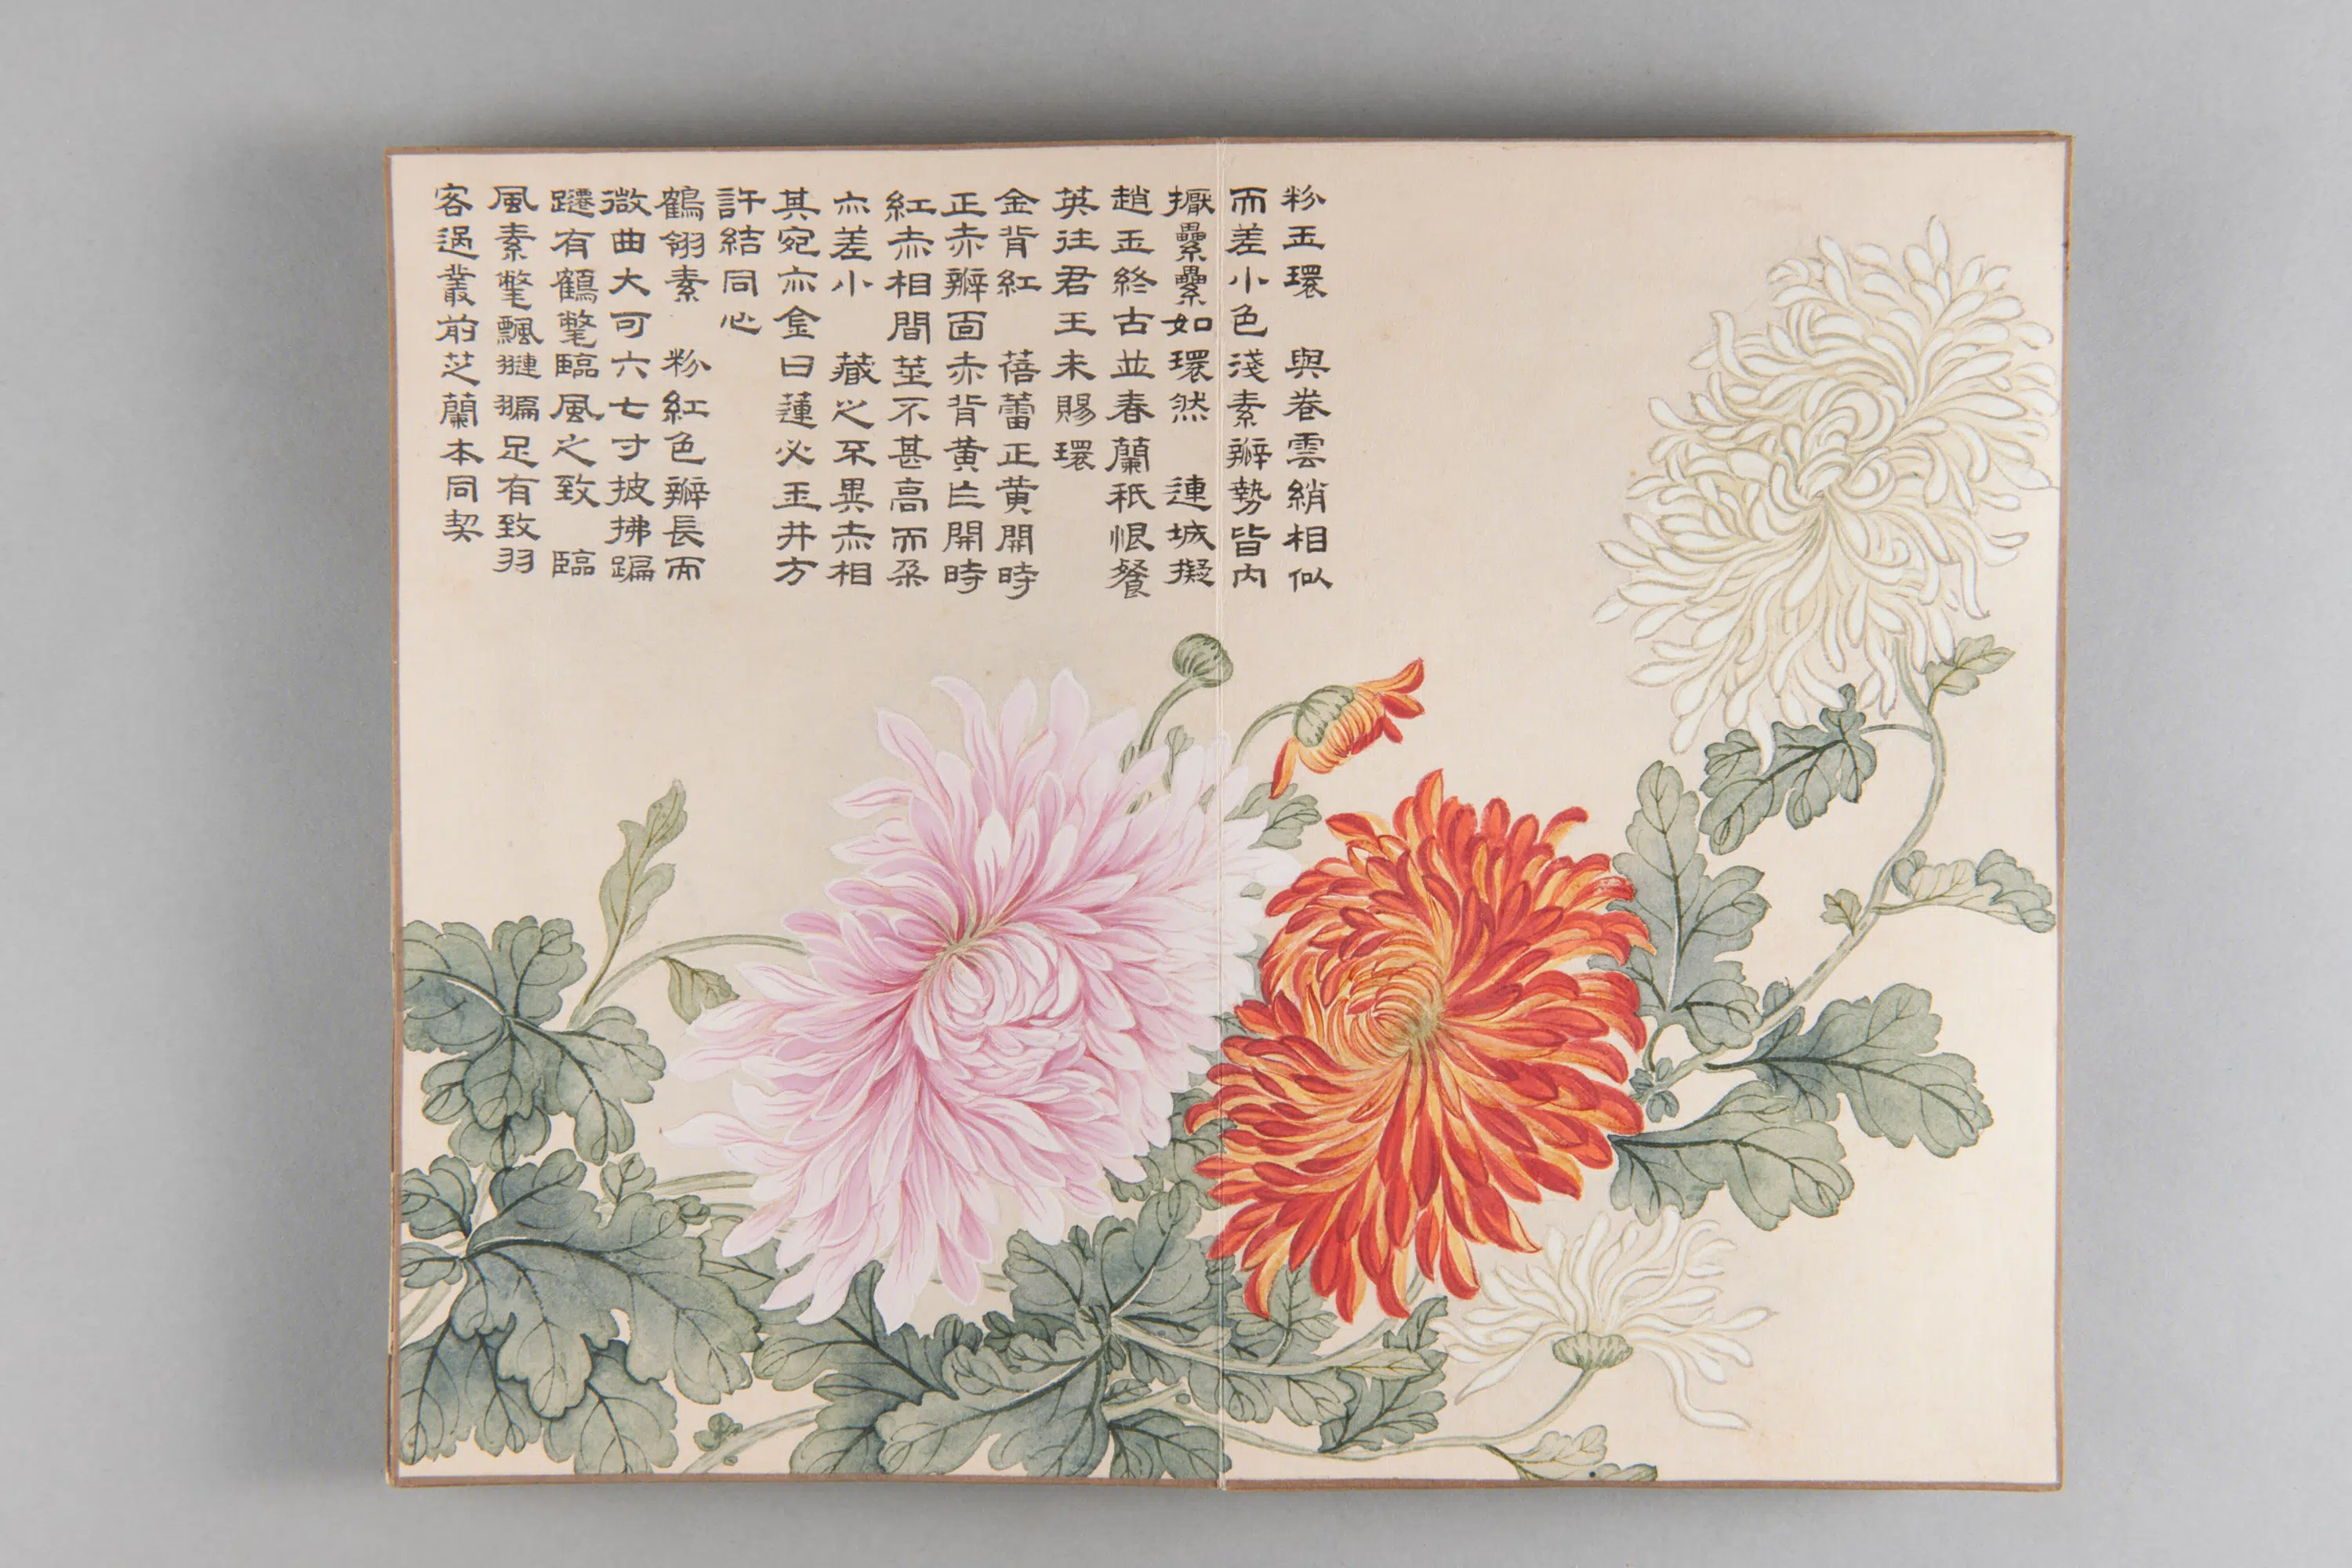 粉玉環 與卷雲綃相似
而差小色淺素瓣勢皆內
擫纍纍如環然 連城擬
趙玉終古並春蘭秖恨餐
英往君王未賜環
金背紅 蓓蕾正黃開時
正赤瓣面赤背黃巨開時
紅赤相間莖不甚高而朶
亦差小 藏之不異赤相
其宛亦金曰蓮必玉井方
許結同心
鶴翎素 粉紅色瓣長而
微曲大可六七寸披拂蹁
躚有鶴氅臨風之致 臨
風素氅飄翩足有致羽
客過叢前芝蘭本同契